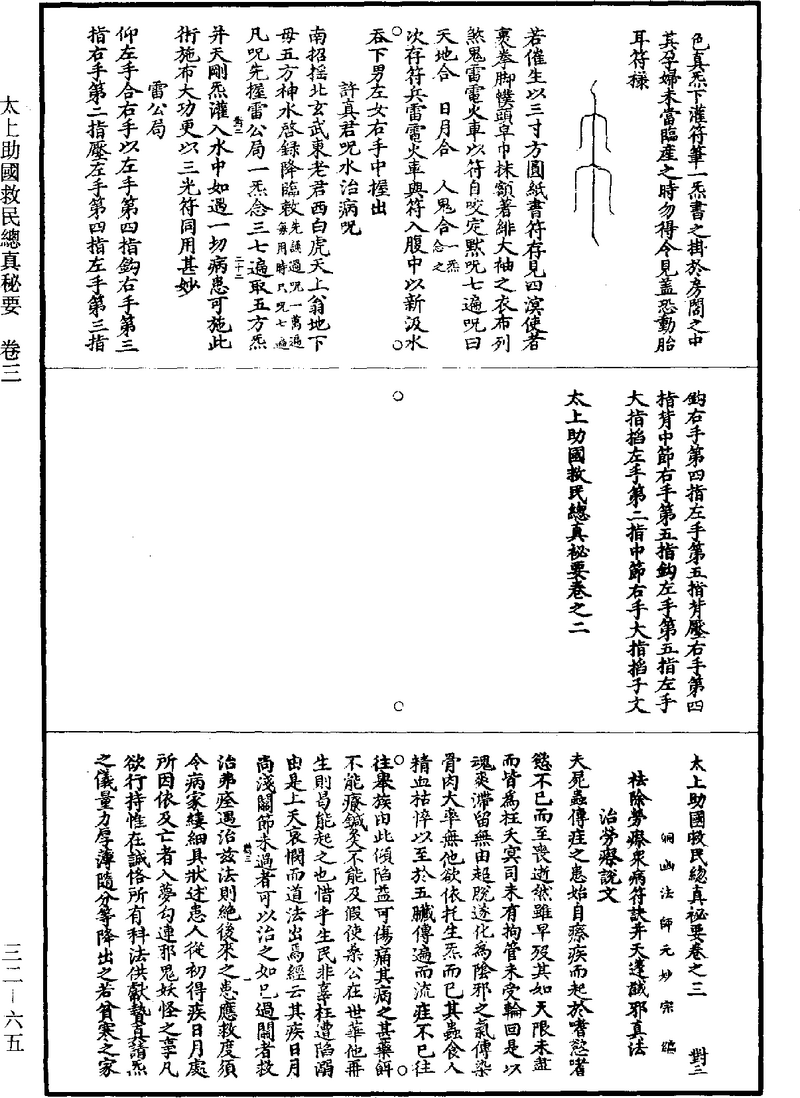 色真炁下灌符筆一炁書之掛於房閤之中
其孕婦未當臨產之時勿得令見蓋恐動胎
耳符樣
若催生以三寸方圓紙書符存見四溟使者
裹拳脚幞頭皁巾抹額著緋大袖之衣布列
煞鬼雷電火車以符自咬定默呪七遍呪曰
天地合 日月合 人鬼合一炁合之
次存符兵雷電火車與符入腹中以新汲水
吞下男左女右手中握出
許真君呪水治病呪
南招搖北玄武東老君西白虎天上翁地下
母五方神水啓録降臨敕先誦過呪一萬遍每用時只呪七遍
凡呪先握雷公局一炁念三七遍取五方炁
并天剛炁灌入水中如遇一切病患可施此
術施布大功更以三光符同用甚妙
雷公局
仰左手合右手以左手第四指鈎右手第三
指右手第二指壓左手第四指左手第三指
鈎右手第四指左手第五指背壓右手第四
指背中節右手第五指鈎左手第五指左手
大指掐左手第二指中節右手大指掐子文
太上助國救民總真祕要卷之二
太上助國救民總真祕要卷之三 對三
洞幽法師元妙宗編
祛除勞瘵衆病符訣并天蓬馘邪真法
治勞瘵說文
夫屍蟲傳疰之患始自瘵疾而起於嗜慾嗜
慾不已而至喪逝然雖早歿其如天限未盡
而皆為枉夭冥司未有拘管未受輪回是以
魂爽滯留無由超脫遂化為陰邪之氣傳染
骨肉大率無他欲依托生炁而已其蟲食人
精血枯悴以至於五臟傳遍而流疰不已往
往舉族由此傾陷益可傷痛其病之甚藥餌
不能療鍼灸不能及假使桑公在世華他再
生則曷能起之也惜乎生民非辜枉遭陷溺
由是上天哀憫而道法出焉經云其疾日月
尚淺關節未過者可以治之如已過關者救
治弗痊遇治兹法則絕後來之患應救度須
令病家縷細具狀述患人從初得疾日月處
所因依及亡者入夢勾連邪鬼妖怪之享凡
欲行持惟在誠恪所有科法供獻贄真請炁
之儀量力厚薄隨分等降出之若貧寒之家
太上助國救民總真秘要 卷三
三二—六五